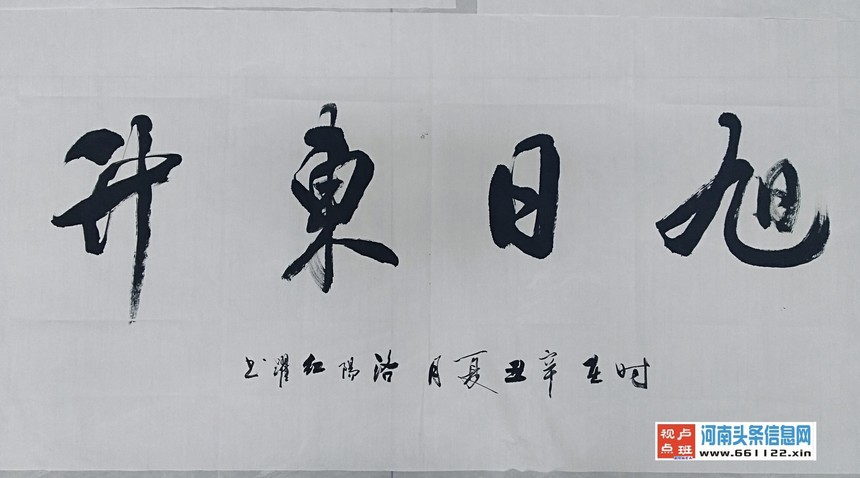 旭日東升
时在辛丑夏月洛陽红躍书
卢班
视点
河南头条信息网
www.661122.xin